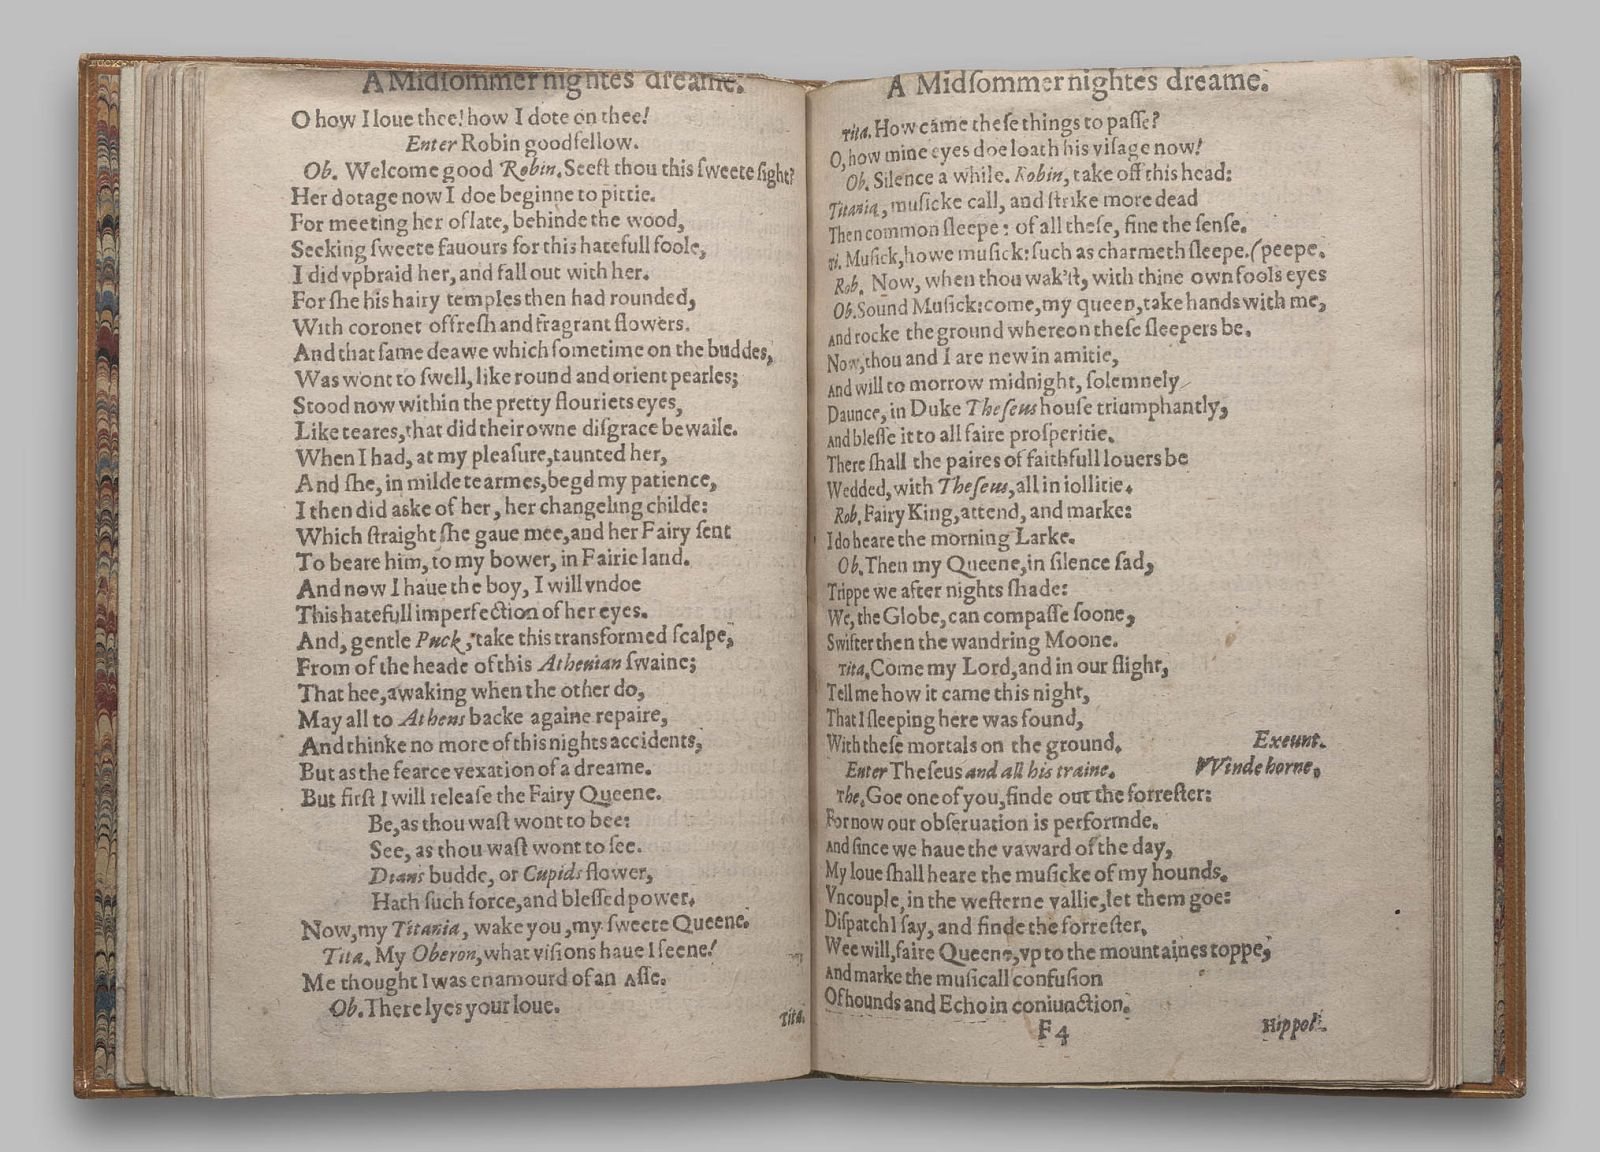 A Midſommer nightes dreame.
O how I loue thee! how I dote on thee!
Enter Robin goodfellow.
Ob. Welcome good Robin. Seeſt thou this ſweete ſight?
Her dotage now I doe beginne to pittie.
For meeting her of late, behinde the wood,
Seeking ſweete fauours for this hatefull foole,
I did vpbraid her, and fall out with her.
For ſhe his hairy temples then had rounded,
With coronet of freſh and fragrant flowers.
And that ſame deawe which ſometime on the buddes,
Was wont to ſwell, like round and orient pearles;
Stood now within the pretty flouriets eyes,
Like teares, that did their owne diſgrace bewaile.
When I had, at my pleaſure, taunted her,
And ſhe, in milde tearmes, begd my patience,
I then did aske of her, her changeling childe:
Which ſtraight ſhe gaue mee, and her Fairy ſent
To beare him, to my bower, in Fairie land.
And now I haue the boy, I will vndoe
This hatefull imperfection of her eyes.
And, gentle Puck, take this transformed ſcalpe,
From of the heade of this Athenian ſwaine;
That hee, awaking when the other do,
May all to Athens backe againe repaire,
And thinke no more of this nights accidents,
But as the fearce vexation of a dreame.
But firſt I will releaſe the Fairy Queene.
Be, as thou waſt wont to bee:
See, as thou waſt wont to ſee.
Dians budde, or Cupids flower,
Hath ſuch force, and bleſſed power.
Now, my Titania, wake you, my ſweete Queene.
Tita. My Oberon, what viſions haue I ſeene!
Me thought I was enamourd of an Aſſe.
Ob. There lyes your loue.
Tita.
A Midſommer nightes dreame.
Tita. How came theſe things to paſſe?
O, how mine eyes doe loath his viſage now!
Ob. Silence a while. Robin, take off this head:
Titania, muſicke call, and ſtrike more dead
Then common ſleepe: of all theſe, fine the ſenſe.
Ti. Muſick, howe muſick: ſuch as charmeth ſleepe. (peepe.
Rob. Now, when thou wak'ſt, with thine own fools eyes
Ob. Sound Muſick: come, my queen, take hands with me,
And rocke the ground whereon theſe ſleepers be.
Now, thou and I are new in amitie,
And will to morrow midnight, ſolemnely
Daunce, in Duke Theſeus houſe triumphantly,
And bleſſe it to all faire proſperitie.
There ſhall the paires of faithfull louers be
Wedded, with Theſeus, all in iollitie.
Rob. Fairy King, attend, and marke:
I do heare the morning Larke.
Ob. Then my Queene, in ſilence ſad,
Trippe we after nights ſhade:
We, the Globe, can compaſſe ſoone,
Swifter then the wandring Moone.
Tita. Come my Lord, and in our flight,
Tell me how it came this night,
That I ſleeping here was found,
With theſe mortals on the ground. Exeunt.
Enter Theſeus and all his traine. VVinde horne.
The. Goe one of you, finde out the forreſter:
For now our obſeruation is performde.
And ſince we haue the vaward of the day,
My loue ſhall heare the muſicke of my hounds.
Vncouple, in the weſterne vallie, let them goe:
Diſpatch I ſay, and finde the forreſter.
Wee will, faire Queene, vp to the mountaines toppe,
And marke the muſicall confuſion
Of hounds and Echo in coniunction.
F4
Hippol.